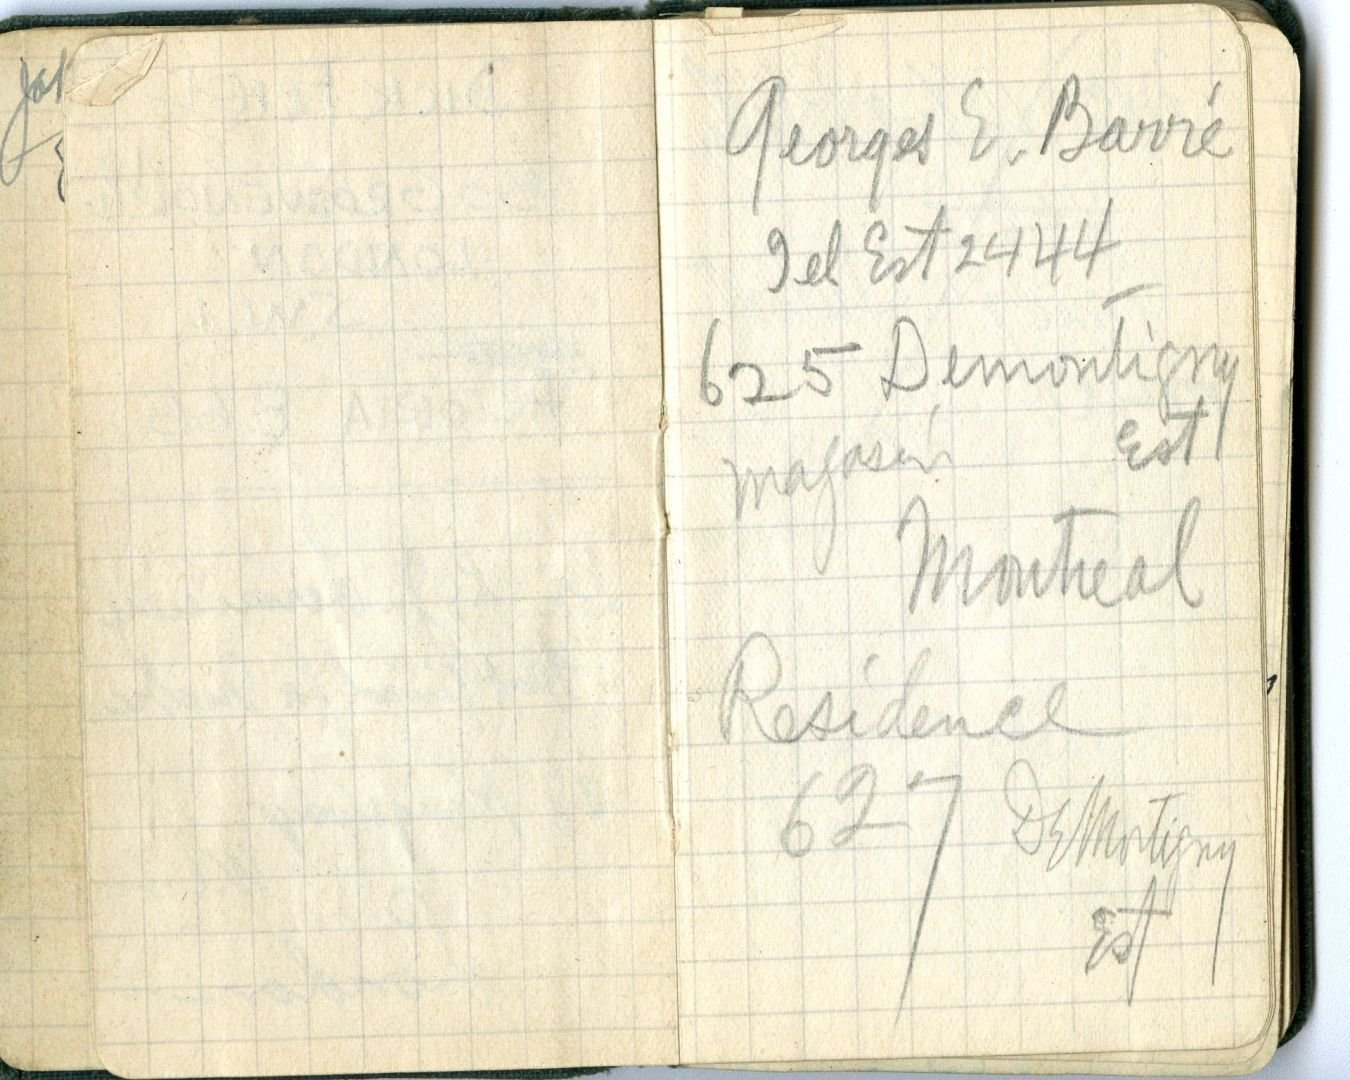 Georges E. Barré
Tel Est 2444
625 Demontigny
Est
magasin
Montreal
Residence
627 DeMontigny
Est